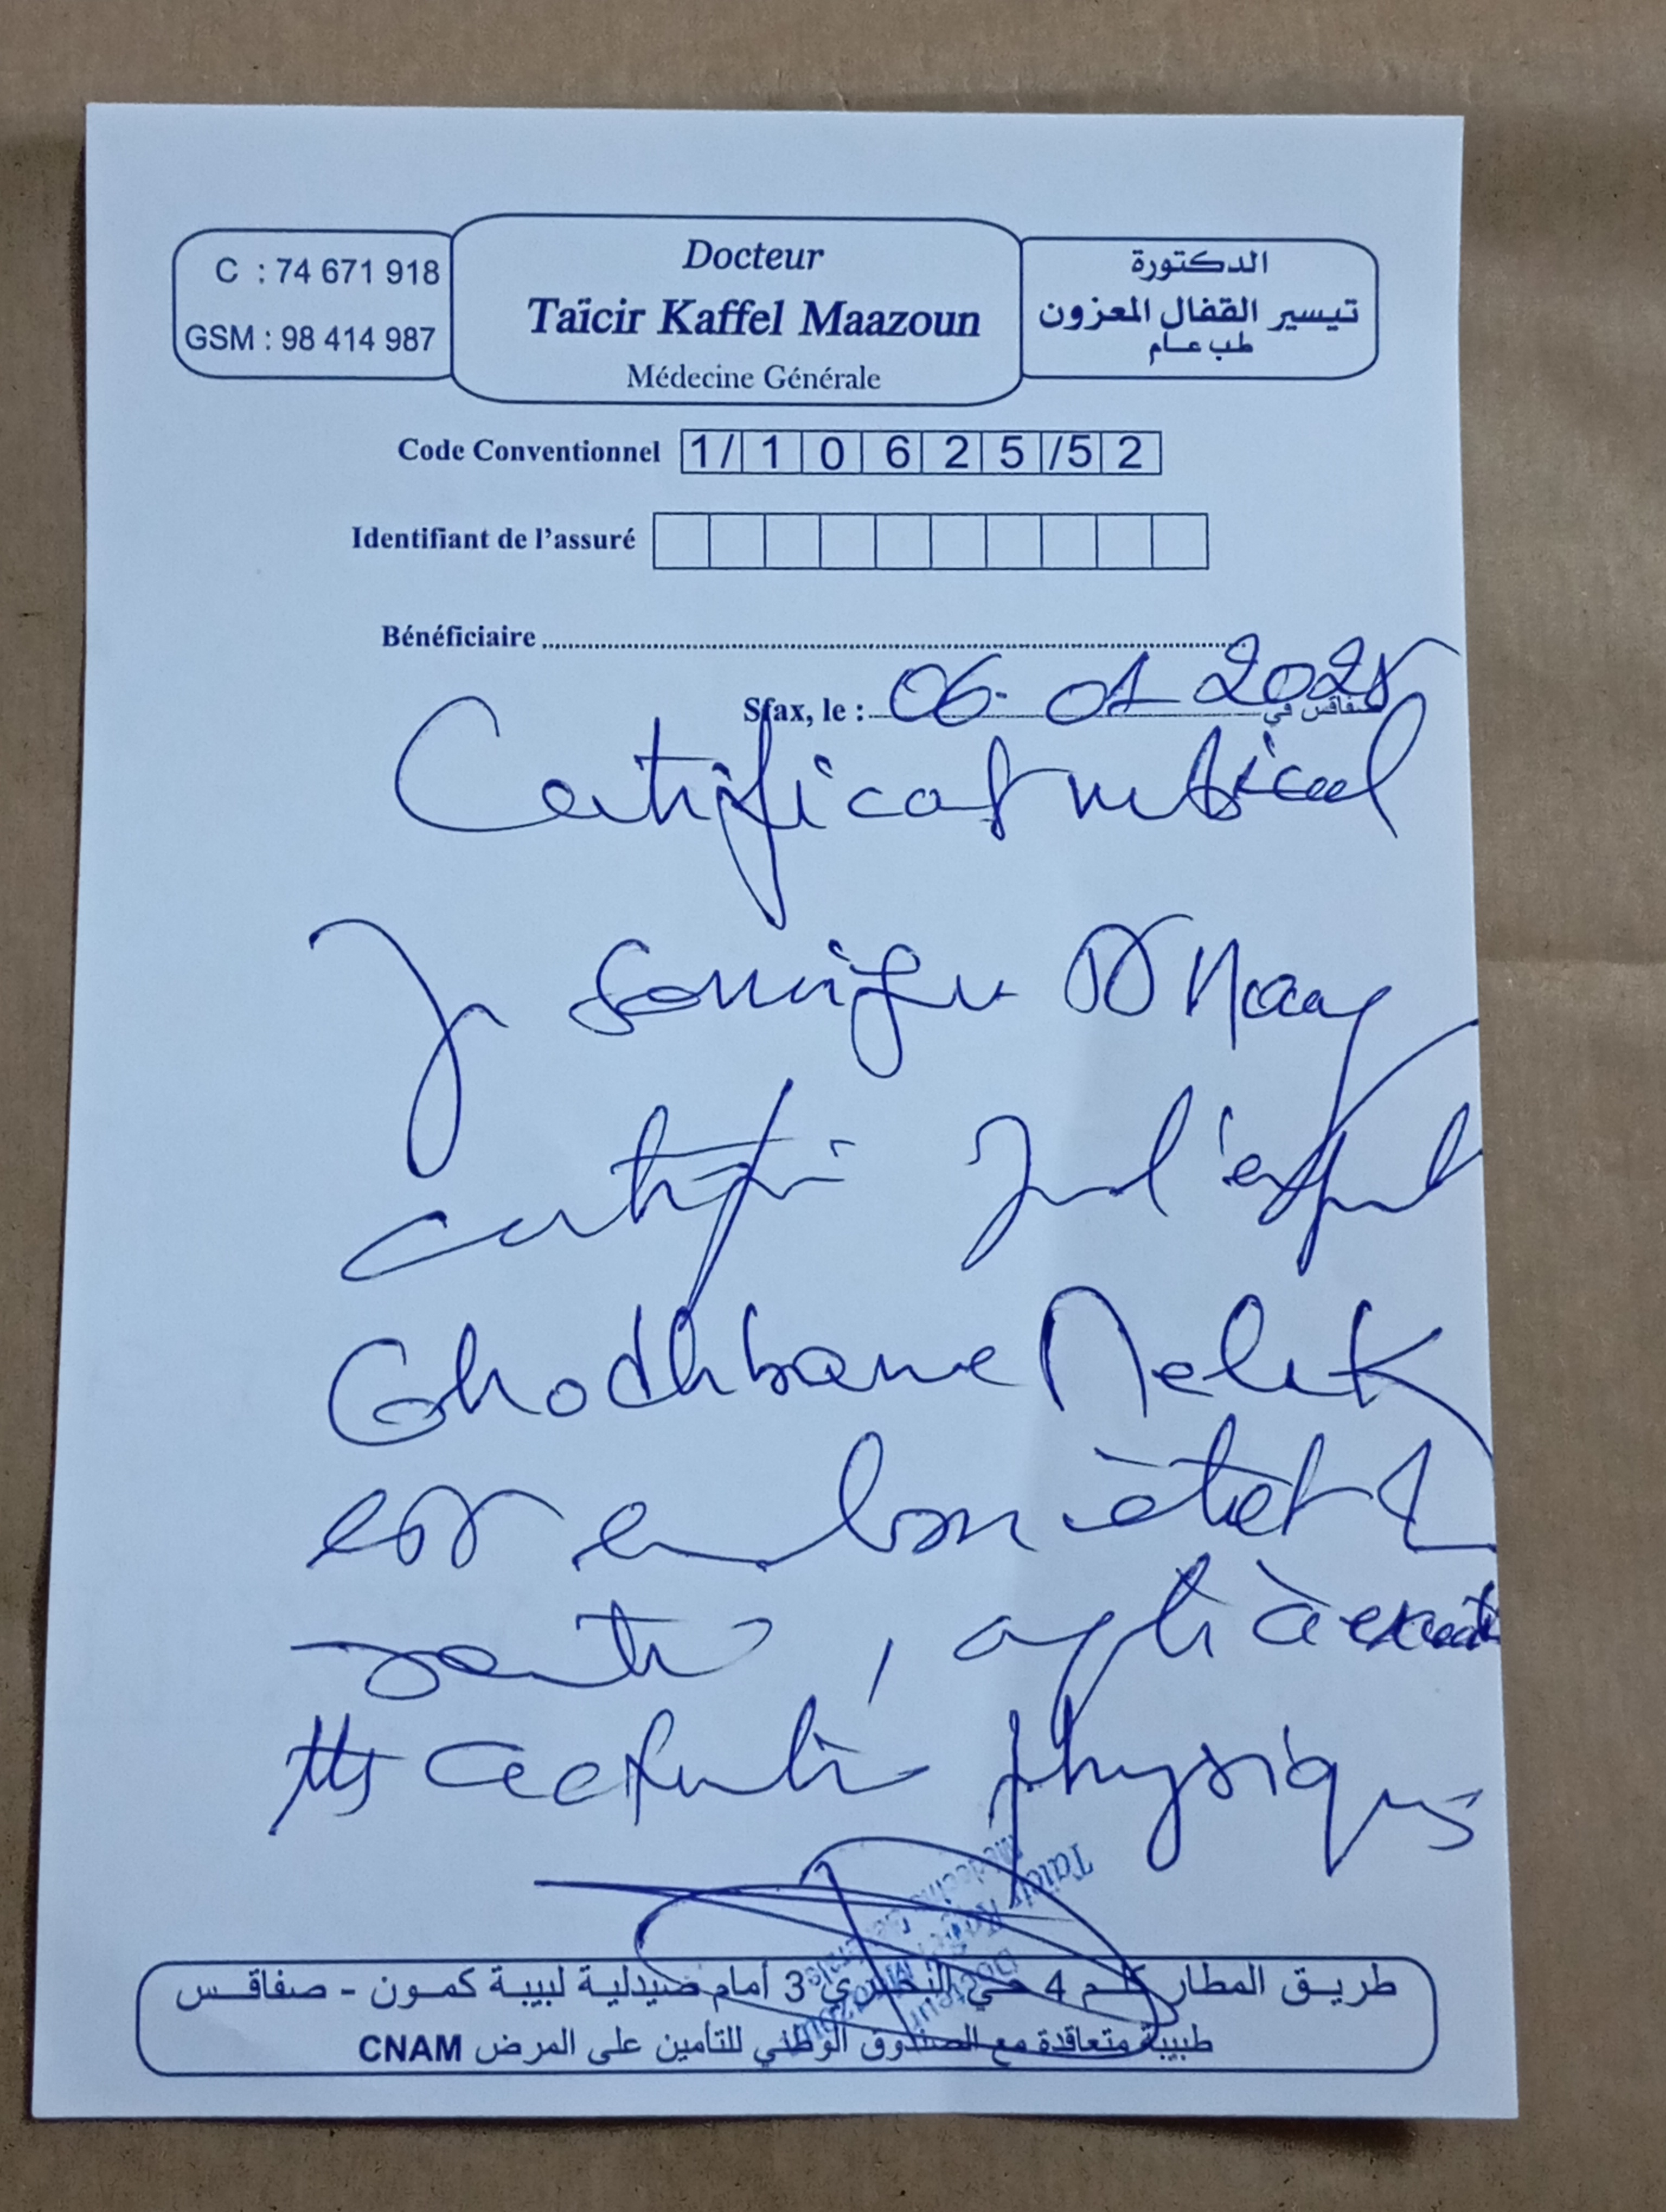 C : 74 671 918
GSM : 98 414 987
Docteur
Taïcir Kaffel Maazoun
Médecine Générale
الدكتورة
تيسير القفال المعزون
طب عام
Code Conventionnel 1/10625/52
Identifiant de l'assuré
Bénéficiaire
Sfax, le : 06-01-2025 صفاقس في
Certificat médical
Je soussignée Dr Maaz
certifie que l'enfant
Ghodhbane Melek
est en bon état de
santé, apte à exercer
ttes activités physiques
Docteur
Taïcir Kaffel Maazoun
Médecine Générale
طريق المطار كلم 4 حي البحري 3 أمام صيدلية لبيبة كمون - صفاقس
طبيبة متعاقدة مع الصندوق الوطني للتأمين على المرض CNAM